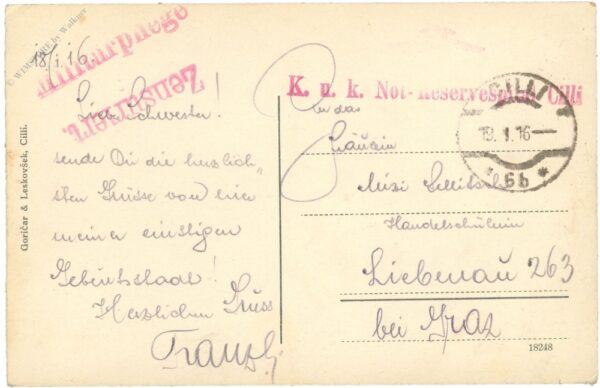 © WIMSERIE by Walkner
Militärpflege
Zensuriert.
18/I.16.
Liebe Schwester!
sende Dir die herzlich-
sten Grüsse von
meiner einstigen
Geburtsstadt!
Herzlichen Gruss
Franzl
Goričar & Leskovšek, Cilli.
K. u. k. Not-Reservespital Cilli
CILLI
19. I. 16
* 6b *
An das
Fräulein
Mizi
Handelsschülerin
Liebenau 263
bei Graz
18248